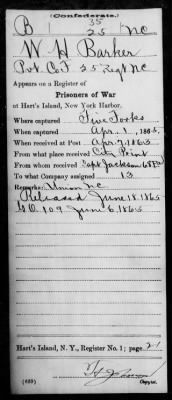 (Confederate.)
35
B 25 NC
W. H. Barker
Pvt. Co F 25 Regt NC
Appears on a Register of
Prisoners of War
at Hart's Island, New York Harbor.
Where captured Five Forks
When captured Apr. 1, 1865.
When received at Post Apr. 7, 1865
From what place received City Point
From whom received Capt Jackson
To what Company assigned 13
Remarks: Union NC
Released June 18, 1865
G.O. 109 June 6, 1865
Hart's Island, N. Y., Register No. 1; page 21
(639) Copyist.